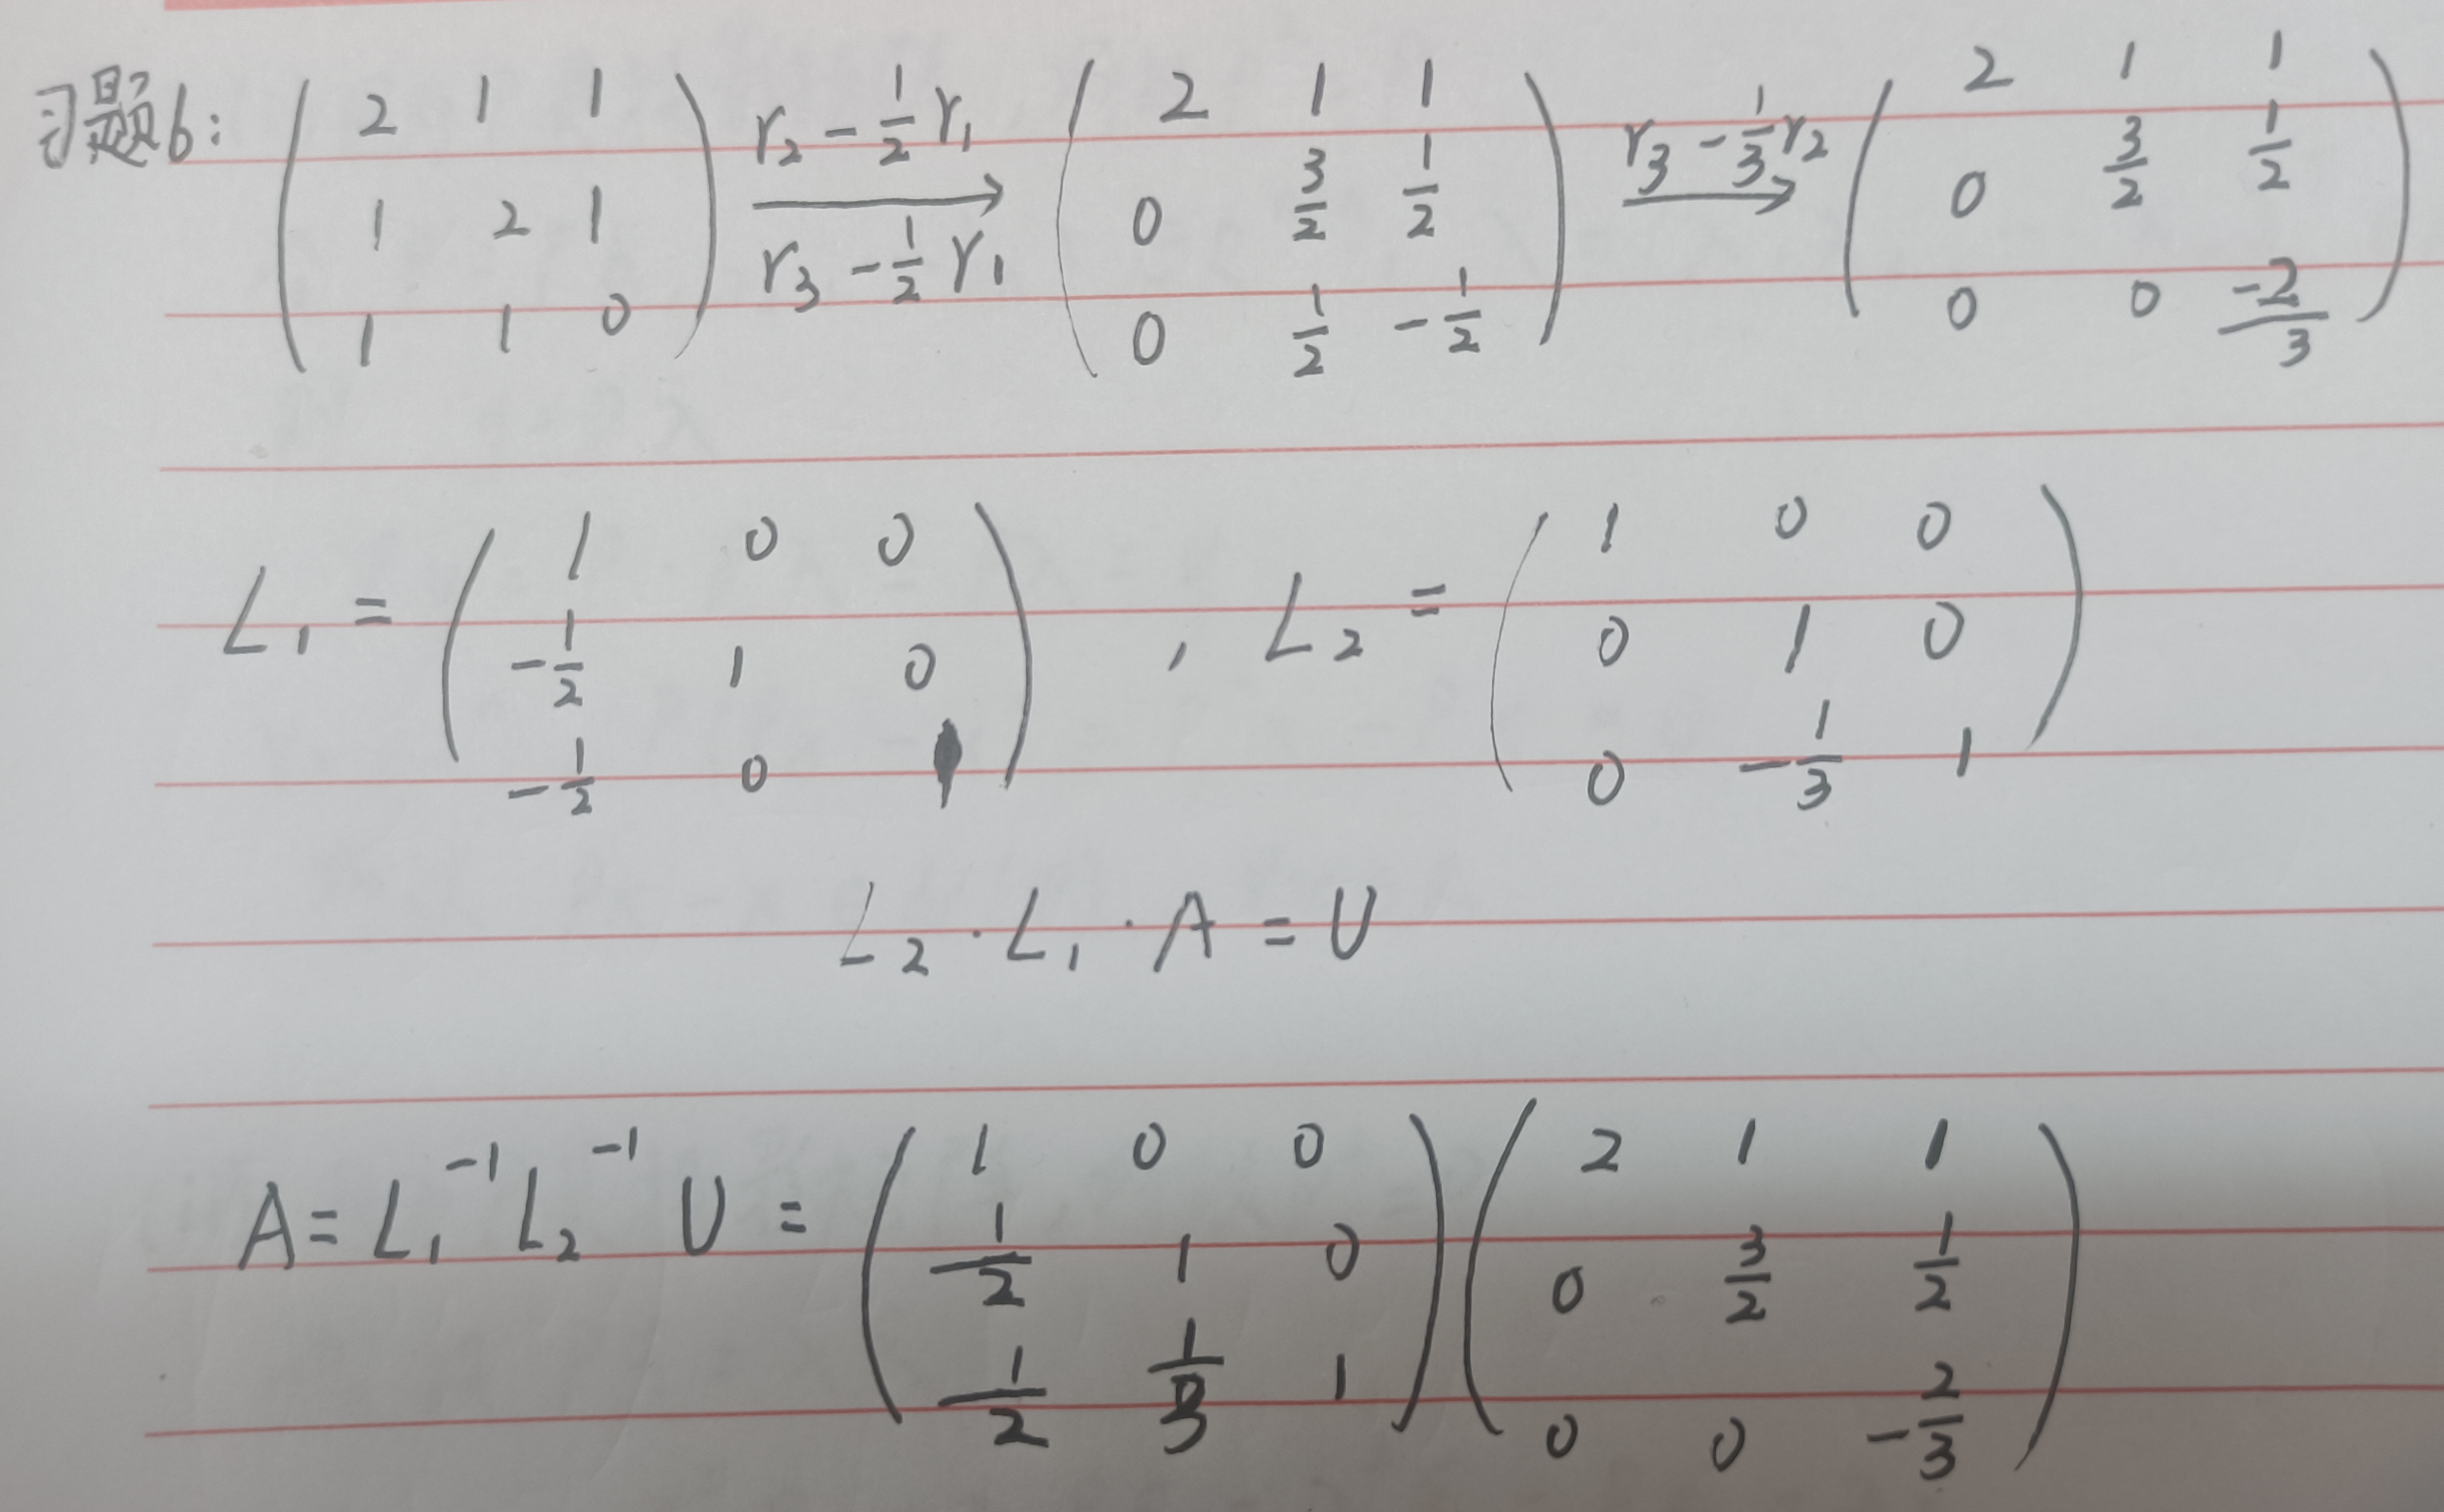 习题6: ( 2 1 1 ; 1 2 1 ; 1 1 0 ) r₂ - 1/2 r₁ , r₃ - 1/2 r₁ → ( 2 1 1 ; 0 3/2 1/2 ; 0 1/2 -1/2 ) r₃ - 1/3 r₂ → ( 2 1 1 ; 0 3/2 1/2 ; 0 0 -2/3 )
L₁ = ( 1 0 0 ; -1/2 1 0 ; -1/2 0 1 ) , L₂ = ( 1 0 0 ; 0 1 0 ; 0 -1/3 1 )
L₂ · L₁ · A = U
A = L₁⁻¹ L₂⁻¹ U = ( 1 0 0 ; 1/2 1 0 ; 1/2 1/3 1 ) ( 2 1 1 ; 0 3/2 1/2 ; 0 0 -2/3 )